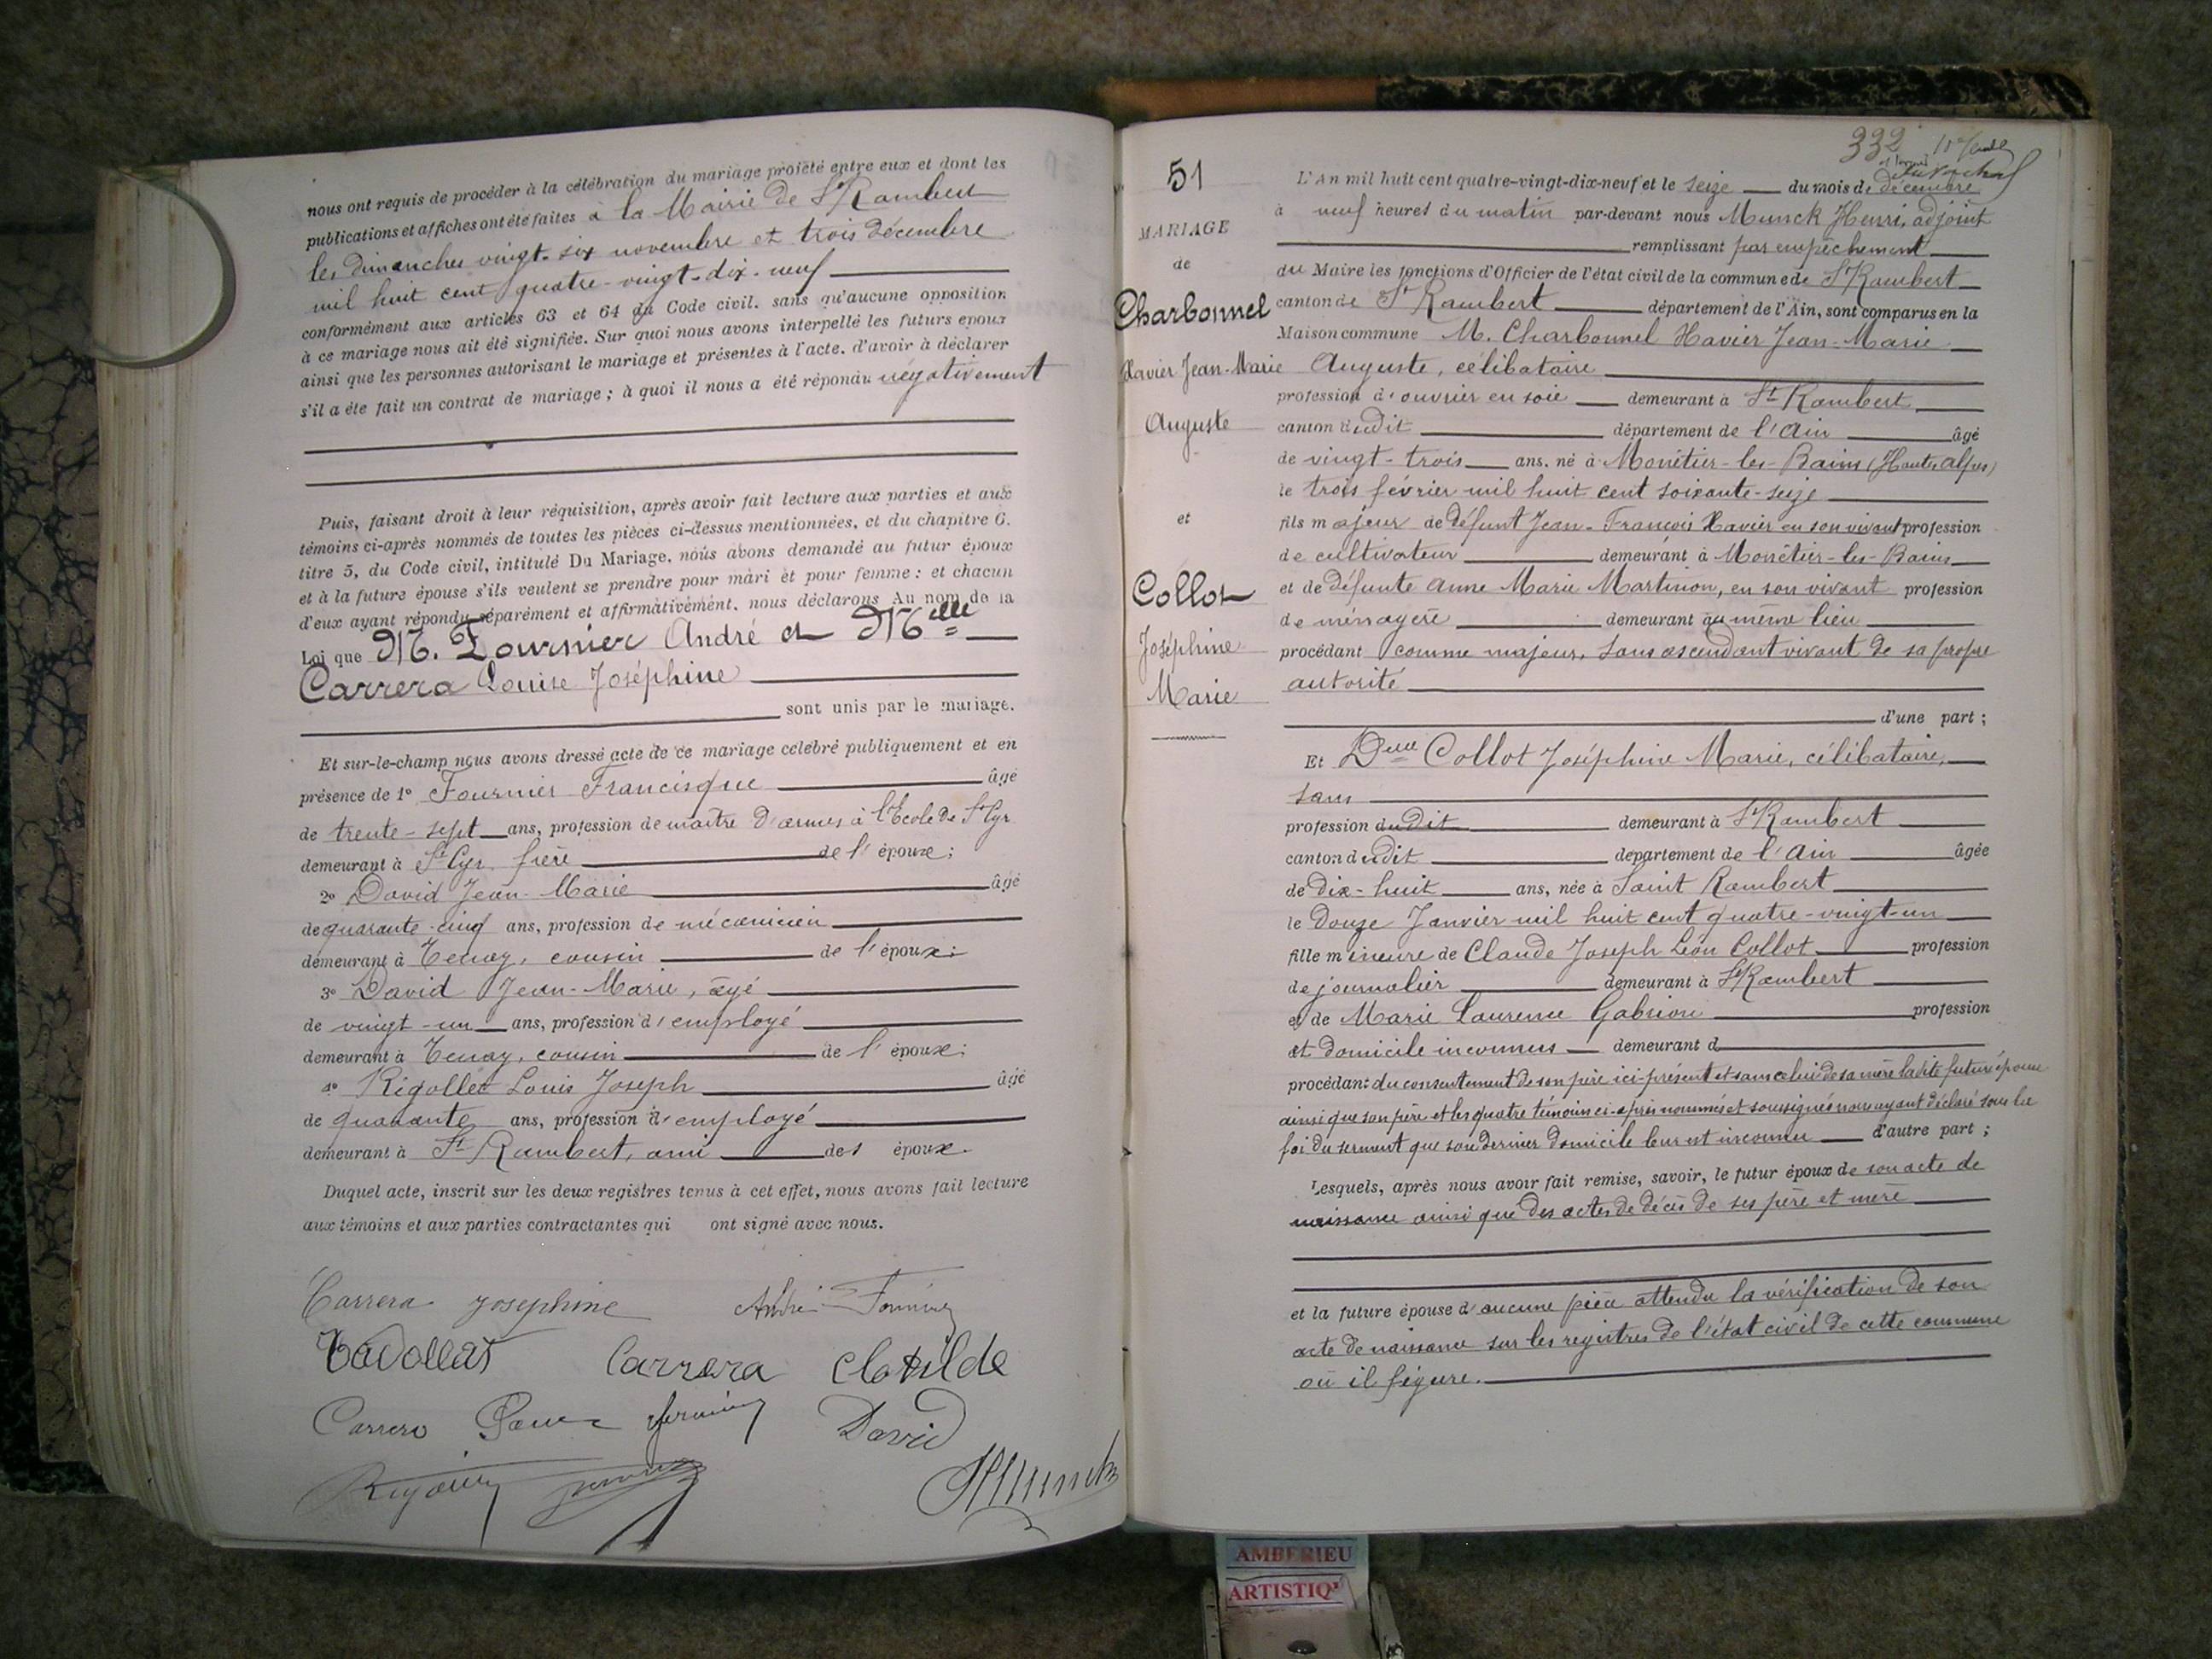 nous ont requis de procéder à la célébration du mariage projeté entre eux et dont les
publications et affiches ont été faites à la Mairie de St Rambert
les dimanches vingt-six novembre et trois décembre
mil huit cent quatre-vingt-dix-neuf
conformément aux articles 63 et 64 du Code civil, sans qu'aucune opposition
à ce mariage nous ait été signifiée. Sur quoi nous avons interpellé les futurs époux
ainsi que les personnes autorisant le mariage et présentes à l'acte, d'avoir à déclarer
s'il a été fait un contrat de mariage ; à quoi il nous a été répondu négativement
Puis, faisant droit à leur réquisition, après avoir fait lecture aux parties et aux
témoins ci-après nommés de toutes les pièces ci-dessus mentionnées, et du chapitre 6,
titre 5, du Code civil, intitulé Du Mariage, nous avons demandé au futur époux
et à la future épouse s'ils veulent se prendre pour mari et pour femme : et chacun
d'eux ayant répondu séparément et affirmativement, nous déclarons Au nom de la
Loi que M. Fournier André et Melle
Carrera Louise Joséphine
sont unis par le mariage.
Et sur-le-champ nous avons dressé acte de ce mariage célébré publiquement et en
présence de 1° Fournier Francisque âgé
de trente-sept ans, profession de maître d'armes à l'Ecole de St Cyr
demeurant à St Cyr, frère de l'époux ;
2° David Jean-Marie âgé
de quarante-cinq ans, profession de mécanicien
demeurant à Tenay, cousin de l'époux ;
3° David Jean-Marie, âgé
de vingt-un ans, profession d'employé
demeurant à Tenay, cousin de l'époux ;
4° Rigollet Louis Joseph âgé
de quarante ans, profession d'employé
demeurant à St Rambert, ami des époux.
Duquel acte, inscrit sur les deux registres tenus à cet effet, nous avons fait lecture
aux témoins et aux parties contractantes qui ont signé avec nous.
Carrera Josephine André Fournier
Carrera Clotilde
Carrera David
HMunck
332
51
MARIAGE
de
Charbonnel
Xavier Jean-Marie
Auguste
et
Collot
Joséphine
Marie
L'An mil huit cent quatre-vingt-dix-neuf et le seize du mois de décembre
à neuf heures du matin par-devant nous Munck Henri, adjoint
remplissant par empêchement
du Maire les fonctions d'Officier de l'état civil de la commune de St Rambert
canton de St Rambert département de l'Ain, sont comparus en la
Maison commune M. Charbonnel Xavier Jean-Marie
Auguste, célibataire
profession d'ouvrier en soie demeurant à St Rambert
canton dudit département de l'Ain âgé
de vingt-trois ans, né à Monêtier-les-Bains (Hautes Alpes)
le trois février mil huit cent soixante-seize
fils majeur de défunt Jean-François Xavier en son vivant profession
de cultivateur demeurant à Monêtier-les-Bains
et de défunte Anne Marie Martinon, en son vivant profession
de ménagère demeurant au même lieu
procédant comme majeur, sans ascendant vivant de sa propre
autorité
d'une part ;
Et Delle Collot Joséphine Marie, célibataire,
sans
profession dudit demeurant à St Rambert
canton dudit département de l'Ain âgée
de dix-huit ans, née à Saint Rambert
le douze Janvier mil huit cent quatre-vingt-un
fille mineure de Claude Joseph Léon Collot profession
de journalier demeurant à St Rambert
et de Marie Laurence Gabrion profession
et domicile inconnus demeurant d
procédant du consentement de son père ici-présent et sans celui de sa mère ladite future épouse
ainsi que son père et les quatre témoins ci-après nommés et soussignés nous ayant déclaré sous la
foi du serment que son dernier domicile leur est inconnu d'autre part ;
Lesquels, après nous avoir fait remise, savoir, le futur époux de son acte de
naissance ainsi que des actes de décès de ses père et mère
et la future épouse d'aucune pièce attendu la vérification de son
acte de naissance sur les registres de l'état civil de cette commune
où il figure.
AMBERIEU
ARTISTIQ'